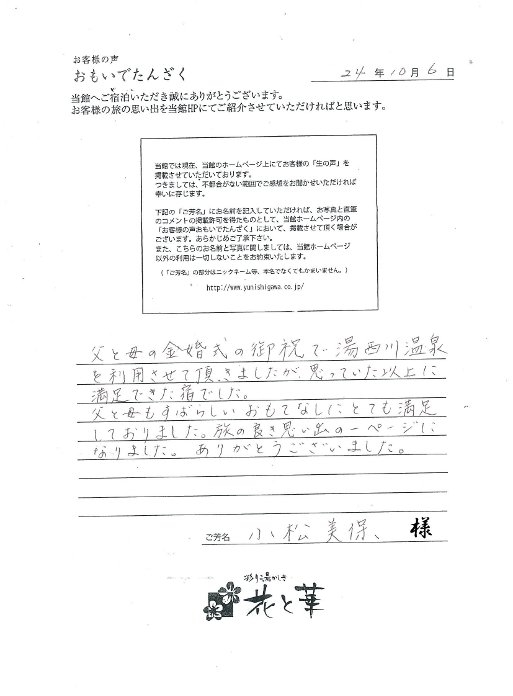 お客様の声
おもいでたんざく
24年10月6日
当館へご宿泊いただき誠にありがとうございます。
お客様の旅の思い出を当館HPにてご紹介させていただければと思います。
当館では現在、当館のホームページ上にてお客様の「生の声」を
掲載させていただいております。
つきましては、不都合がない範囲でご感想をお聞かせいただければ
幸いに存じます。
下記の「ご芳名」にお名前を記入していただければ、お写真と直筆
のコメントの掲載許可を得たものとして、当館ホームページ内の
「お客様の声おもいでたんざく」において、掲載させて頂く場合が
ございます。あらかじめご了承下さい。
また、こちらのお名前と写真に関しましては、当館ホームページ
以外の利用は一切しないことをお約束いたします。
(「ご芳名」の部分はニックネーム等、本名でなくてもかまいません。)
http://www.yunishigawa.co.jp/
父と母の金婚式の御祝で湯西川温泉
を利用させて頂きましたが、思っていた以上に
満足できた宿でした。
父と母もすばらしいおもてなしにとても満足
しておりました。旅の良き思い出の一ページに
なりました。ありがとうございました。
ご芳名 小松美保、様
彩り湯かしき
花と華